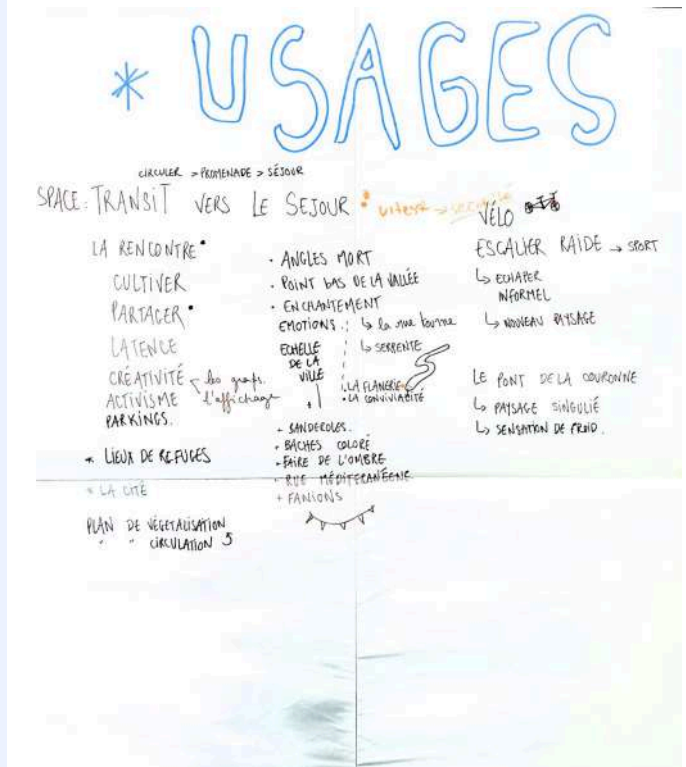 * USAGES
CIRCULER > PROMENADE > SÉJOUR
SPACE: TRANSIT VERS LE SEJOUR :
LA RENCONTRE •
CULTIVER
PARTAGER •
LATENCE
CRÉATIVITÉ
les grafs.
l'affichage
ACTIVISME
PARKINGS.
* LIEUX DE REFUGES
* LA CITÉ
PLAN DE VÉGETALISATION
" " CIRCULATION 5
• ANGLES MORT
• POINT BAS DE LA VALLÉE
• ENCHANTEMENT
EMOTIONS :
↳ la rue tourne
↳ SERPENTE
ECHELLE
DE LA
VILLE
• LA FLANERIE
• LA CONVIVIALITÉ
+ BANDEROLES.
• BÂCHES COLORÉ
• FAIRE DE L'OMBRE
• RUE MÉDITERANÉENE
+ FANIONS
VÉLO
ESCALIER RAIDE → SPORT
↳ ECHAPER
INFORMEL
↳ NOUVEAU PAYSAGE
LE PONT DE LA COURONNE
↳ PAYSAGE SINGULIÉ
↳ SENSATION DE FROID.